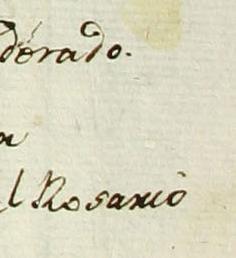 dorado.
a
l Rosario